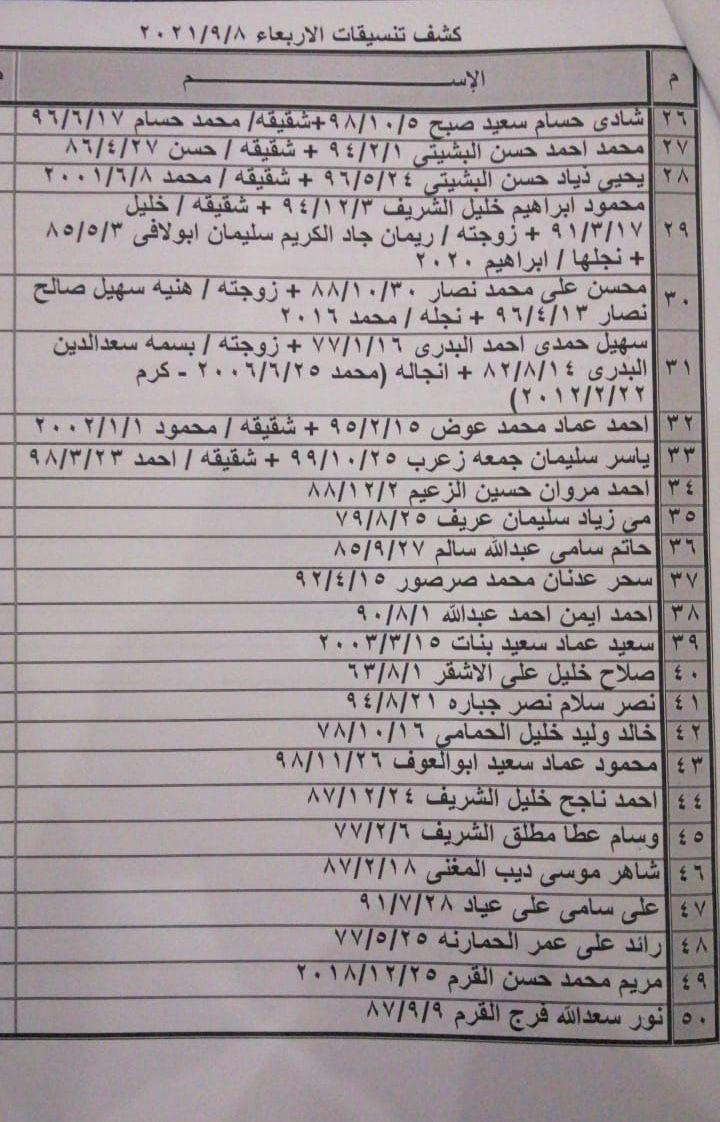 كشف تنسيقات الاربعاء ٢٠٢١/٩/٨
م الإســـــــــم
٢٦ شادى حسام سعيد صبح ٩٨/١٠/٥+شقيقه/ محمد حسام ٩٦/٦/١٧
٢٧ محمد احمد حسن البشيتي ٩٤/٢/١ + شقيقه / حسن ٨٦/٤/٢٧
٢٨ يحيى ذياد حسن البشيتي ٩٦/٥/٢٤ + شقيقه / محمد ٢٠٠١/٦/٨
٢٩ محمود ابراهيم خليل الشريف ٩٤/١٢/٣ + شقيقه / خليل
٩١/٣/١٧ + زوجته / ريمان جاد الكريم سليمان ابولافى ٨٥/٥/٣
+ نجلها / ابراهيم ٢٠٢٠
٣٠ محسن على محمد نصار ٨٨/١٠/٣٠ + زوجته / هنيه سهيل صالح
نصار ٩٦/٤/١٣ + نجله / محمد ٢٠١٦
٣١ سهيل حمدى احمد البدرى ٧٧/١/١٦ + زوجته / بسمه سعدالدين
البدرى ٨٢/٨/١٤ + انجاله (محمد ٢٠٠٦/٦/٢٥ - كرم
٢٠١٢/٢/٢٢)
٣٢ احمد عماد محمد عوض ٩٥/٢/١٥ + شقيقه / محمود ٢٠٠٢/١/١
٣٣ ياسر سليمان جمعه زعرب ٩٩/١٠/٢٥ + شقيقه / احمد ٩٨/٣/٢٣
٣٤ احمد مروان حسين الزعيم ٨٨/١٢/٢
٣٥ مى زياد سليمان عريف ٧٩/٨/٢٥
٣٦ حاتم سامى عبدالله سالم ٨٥/٩/٢٧
٣٧ سحر عدنان محمد صرصور ٩٢/٤/١٥
٣٨ احمد ايمن احمد عبدالله ٩٠/٨/١
٣٩ سعيد عماد سعيد بنات ٢٠٠٣/٣/١٥
٤٠ صلاح خليل على الاشقر ٦٣/٨/١
٤١ نصر سلام نصر جباره ٩٤/٨/٢١
٤٢ خالد وليد خليل الحمامى ٧٨/١٠/١٦
٤٣ محمود عماد سعيد ابوالعوف ٩٨/١١/٢٦
٤٤ احمد ناجح خليل الشريف ٨٧/١٢/٢٤
٤٥ وسام عطا مطلق الشريف ٧٧/٢/٦
٤٦ شاهر موسى ديب المغنى ٨٧/٢/١٨
٤٧ على سامى على عياد ٩١/٧/٢٨
٤٨ رائد على عمر الحمارنه ٧٧/٥/٢٥
٤٩ مريم محمد حسن القرم ٢٠١٨/١٢/٢٥
٥٠ نور سعدالله فرج القرم ٨٧/٩/٩